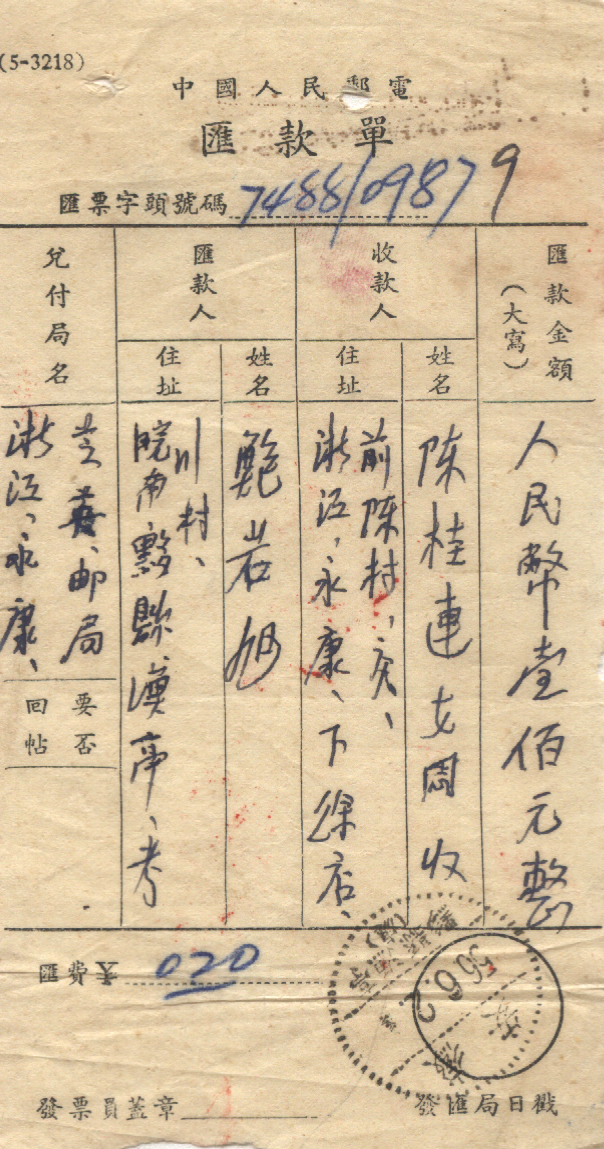 (5-3218)
中國人民郵電
匯款單
匯票字頭號碼 7488/09879
匯款金額
(大寫)
人民幣壹佰元整
收款人
姓名
陳桂連女周收
住址
前陳村,交、
浙江,永康、下徐店、
匯款人
姓名
鮑岩旭
住址
川村、
皖南黟縣漢亭、考
兌付局名
芝英、邮局
浙江、永康、
要否
回帖
匯費 020
56.6.2
發票員蓋章
發匯局日戳